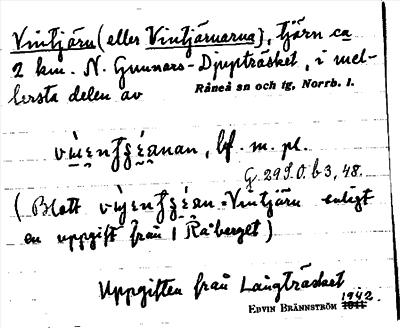 Vintjärn (eller Vintjärnarna), tjärn ca
2 km. N. Gunnars-Djupträsket, i mel-
lersta delen av Råneå sn och tg, Norrb. l.
bf. m. pl.
G. 29 S. O. b 3, 48.
(Blott Vintjärn enligt
en uppgift från 1 Råberget)
Uppgiften från Långträsket
EDVIN BRÄNNSTRÖM 1942.